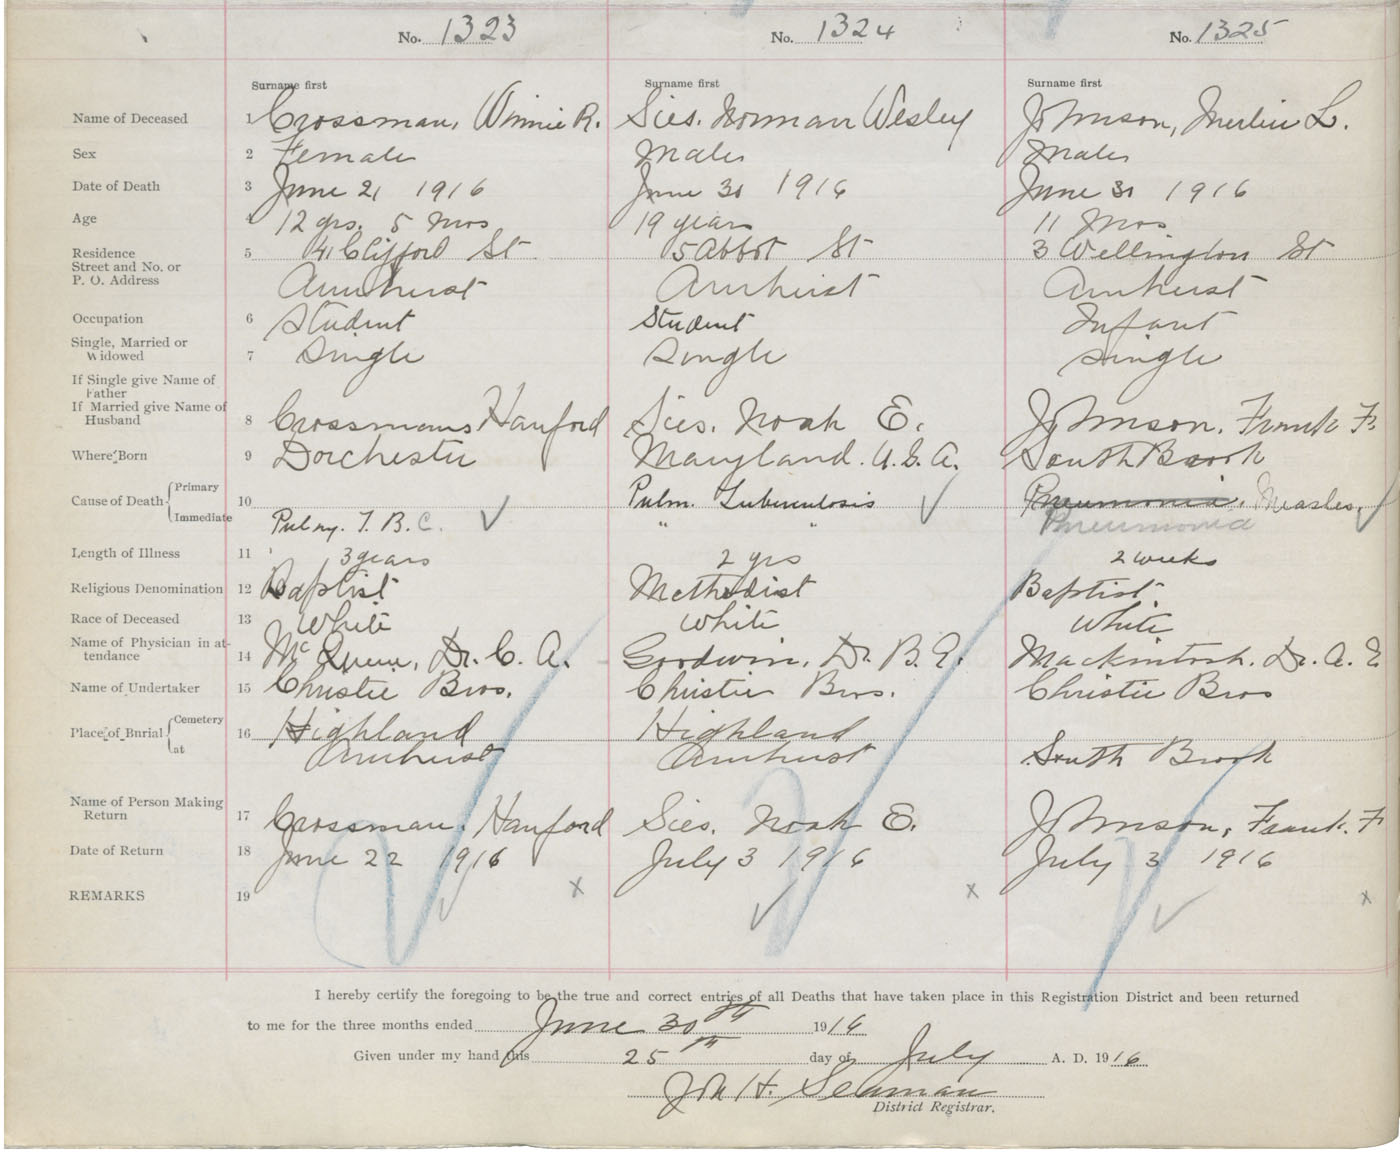 No. 1323 No. 1324 No. 1325
Surname first Surname first Surname first
Name of Deceased 1 Crossman, Winnie R. Sies. Norman Wesley Johnson, Merlin L.
Sex 2 Female Male Male
Date of Death 3 June 21 1916 June 30 1916 June 30 1916
Age 4 12 yrs. 5 Mos 19 years 11 Mos
Residence 5 41 Clifford St 5 Abbot St 3 Wellington St
Street and No. or
P. O. Address Amherst Amherst Amherst
Occupation 6 Student Student Infant
Single, Married or
Widowed 7 Single Single Single
If Single give Name of
Father
If Married give Name of
Husband 8 Crossman Hanford Sies. Noah E. Johnson. Frank F.
Where Born 9 Dorchester Maryland. U.S.A. South Brook
Cause of Death Primary 10 Pulm. Tuberculosis Pneumonia. Measles.
Immediate Pulmy. T. B. C. " " Pneumonia
Length of Illness 11 3 years 2 yrs 2 weeks
Religious Denomination 12 Baptist Methodist Baptist
Race of Deceased 13 White White White
Name of Physician in at-
tendance 14 Mc Quinn, Dr. C. A. Goodwin, Dr. B. E. Mackintosh. Dr. A. E
Name of Undertaker 15 Christie Bros. Christie Bros. Christie Bros
Place of Burial Cemetery 16 Highland Highland
at Amherst Amherst South Brook
Name of Person Making
Return 17 Crossman. Hanford Sies. Noah E. Johnson, Frank. F
Date of Return 18 June 22 1916 July 3 1916 July 3 1916
REMARKS 19 x x x
I hereby certify the foregoing to be the true and correct entries of all Deaths that have taken place in this Registration District and been returned
to me for the three months ended June 30th 1916
Given under my hand this 25th day of July A. D. 1916
Jno H. Seaman
District Registrar.